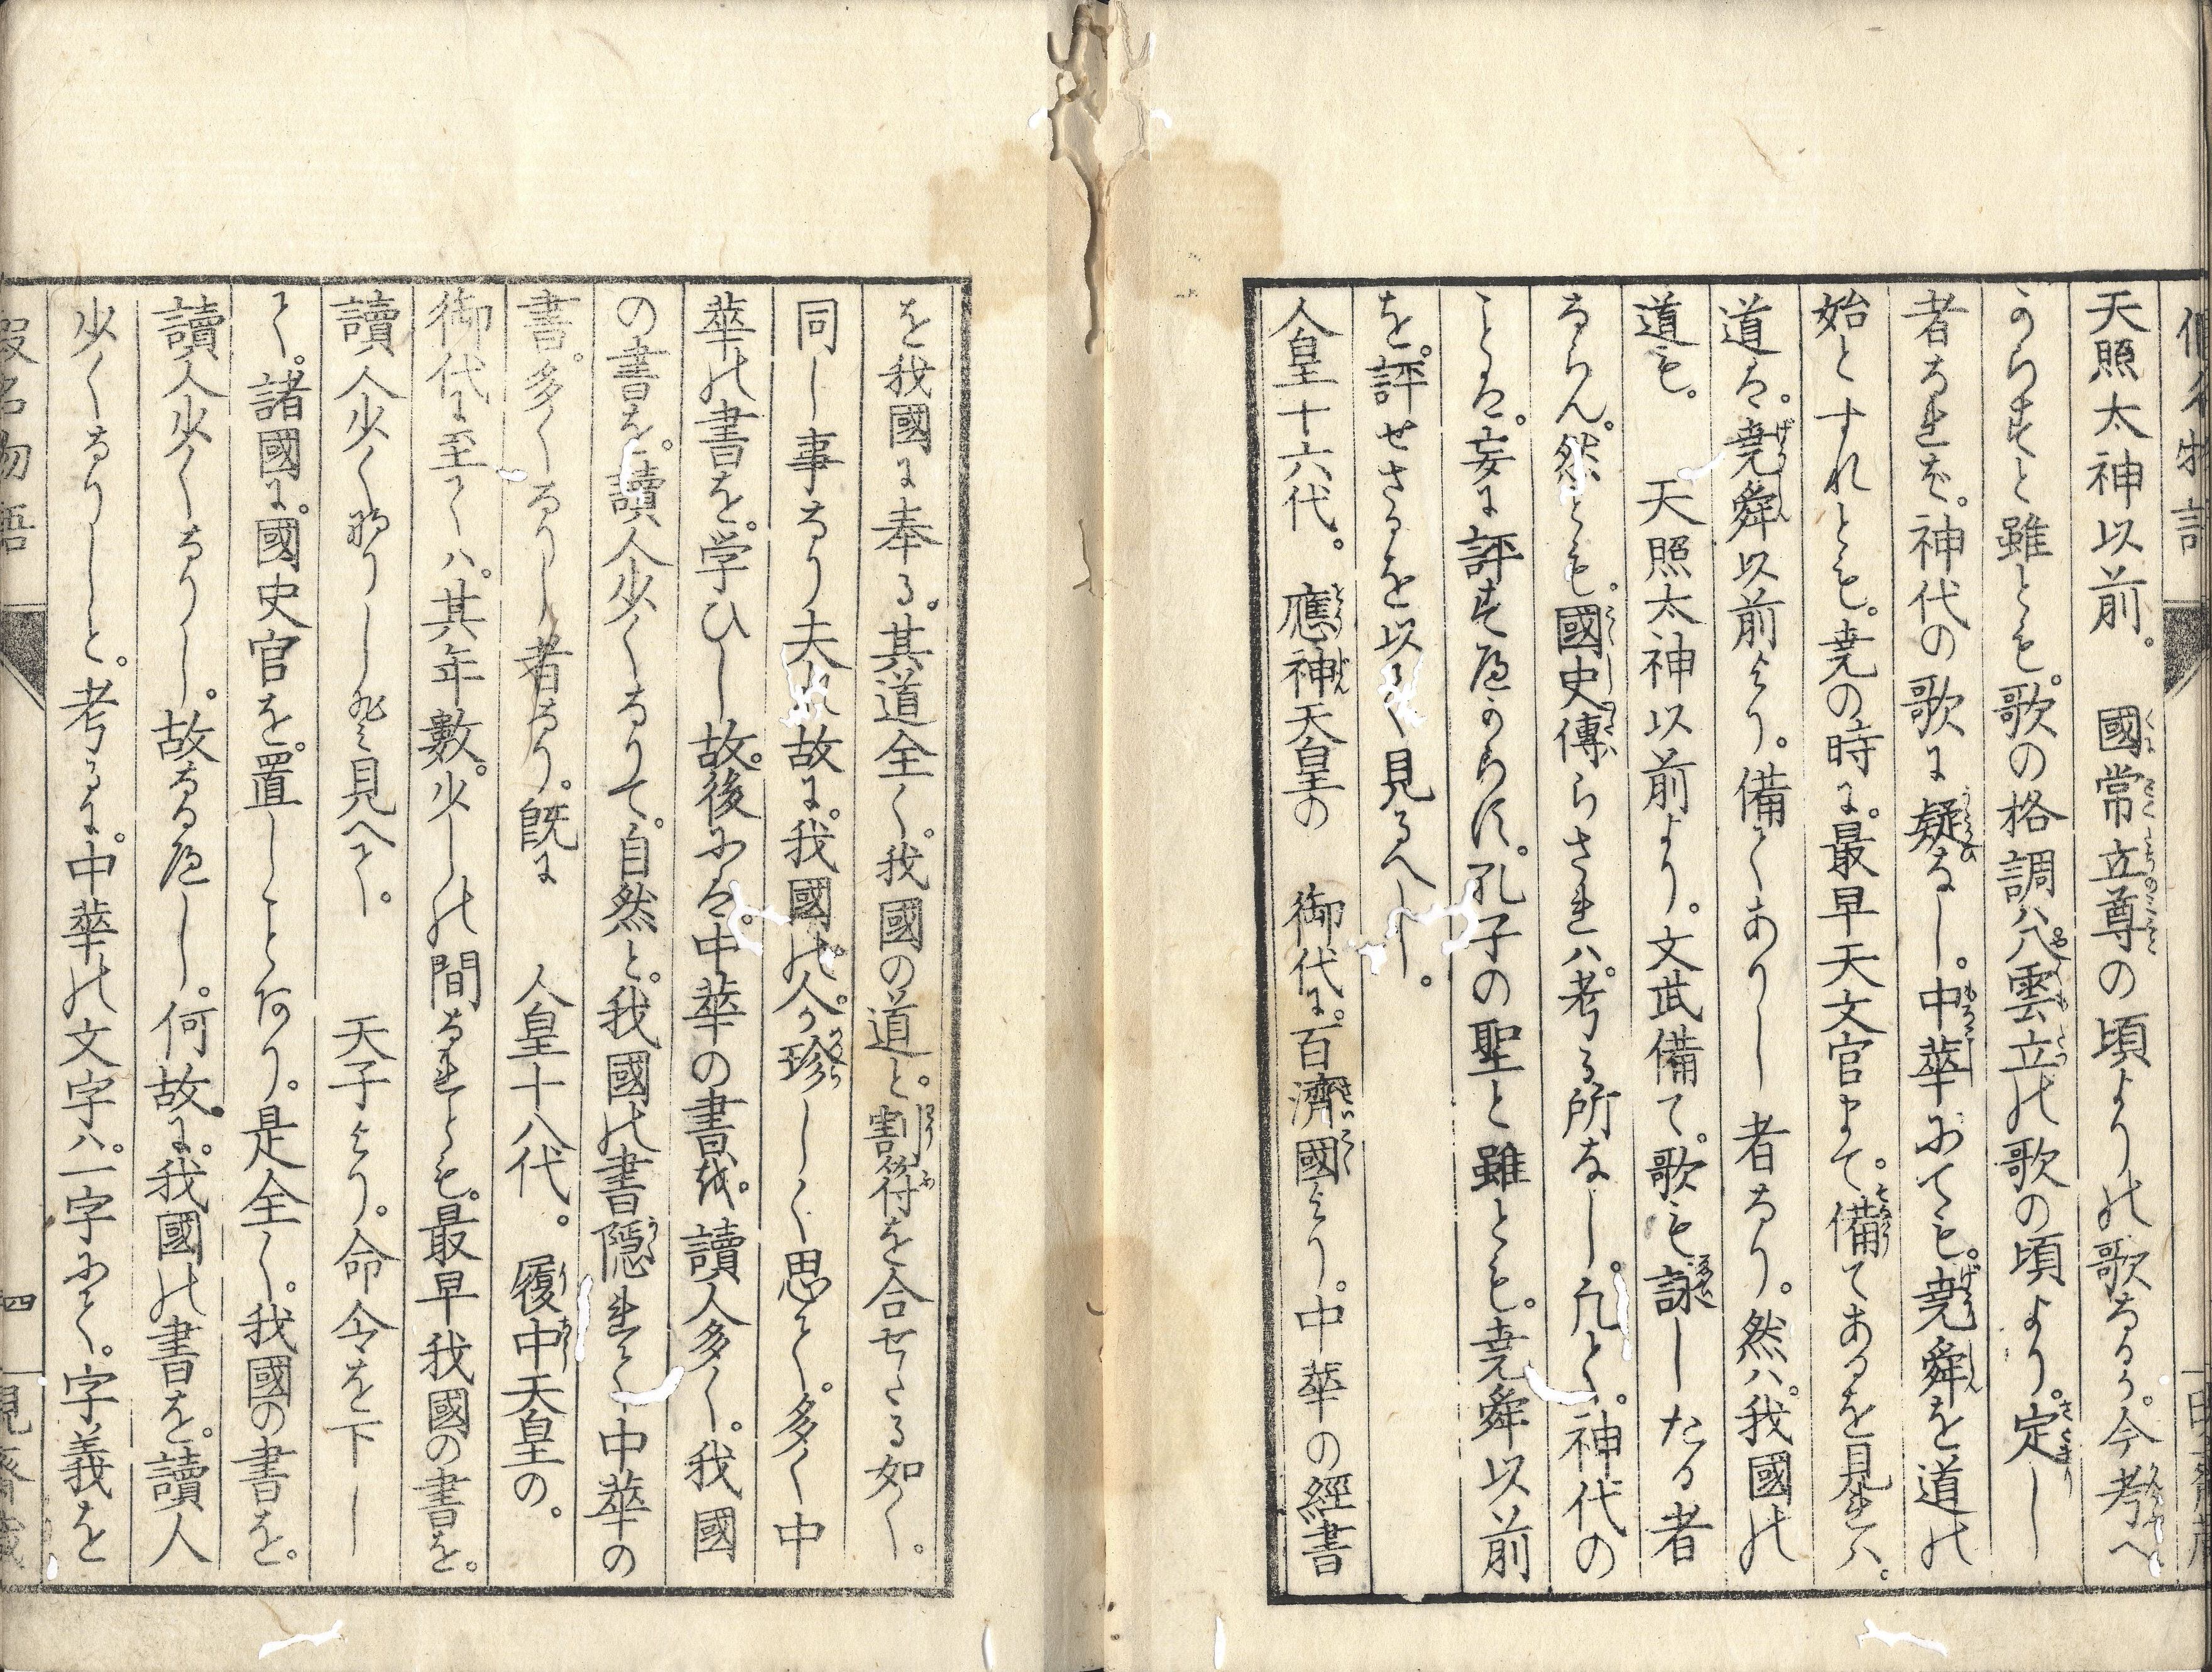 天照太神以前。　國常立尊の頃よりの歌なるか。今考へ
からすと雖とも。歌の格調ハ八雲立の歌の頃より。定し
者なれば。神代の歌に疑なし。中華にても。堯舜を道の
始とすれとも。堯の時に。最早天文官まて。備てあるを見れハ。
道は。堯舜以前より。備てありし者なり。然ハ。我國の
道も。　天照太神以前より。文武備て。歌も詠したる者
ならん。然とも。國史傳らされハ。考る所なし。凡て。神代の
ことは。妄に評すへからす。孔子の聖と雖とも。堯舜以前
を。評せさるを以て見るへし。
人皇十六代。　應神天皇の　御代に。百濟國より。中華の經書
を我國に奉る。其道全く。我國の道と。割符を合せたる如く。
同し事なり夫故に。我國の人。か珍しく思て。多く中
華の書を。学ひし故。後には。中華の書を。讀人多く。我國
の書を。讀人少くなりて。自然と。我國の書隱れて中華の
書。多くなりし者なり。既に　人皇十八代。　履中天皇の。
御代に至てハ。其年數。少しの間なれとも。最早我國の書を。
讀人少く成りしと見へて。　天子より。命令を下し
て。諸國に。國史官を。置しことあり。是全く。我國の書を。
讀人少くなりし。故なるへし。何故に。我國の書を。讀人
少くなりしと。考るに。中華の文字ハ。一字にて。字義を
假名物語
四